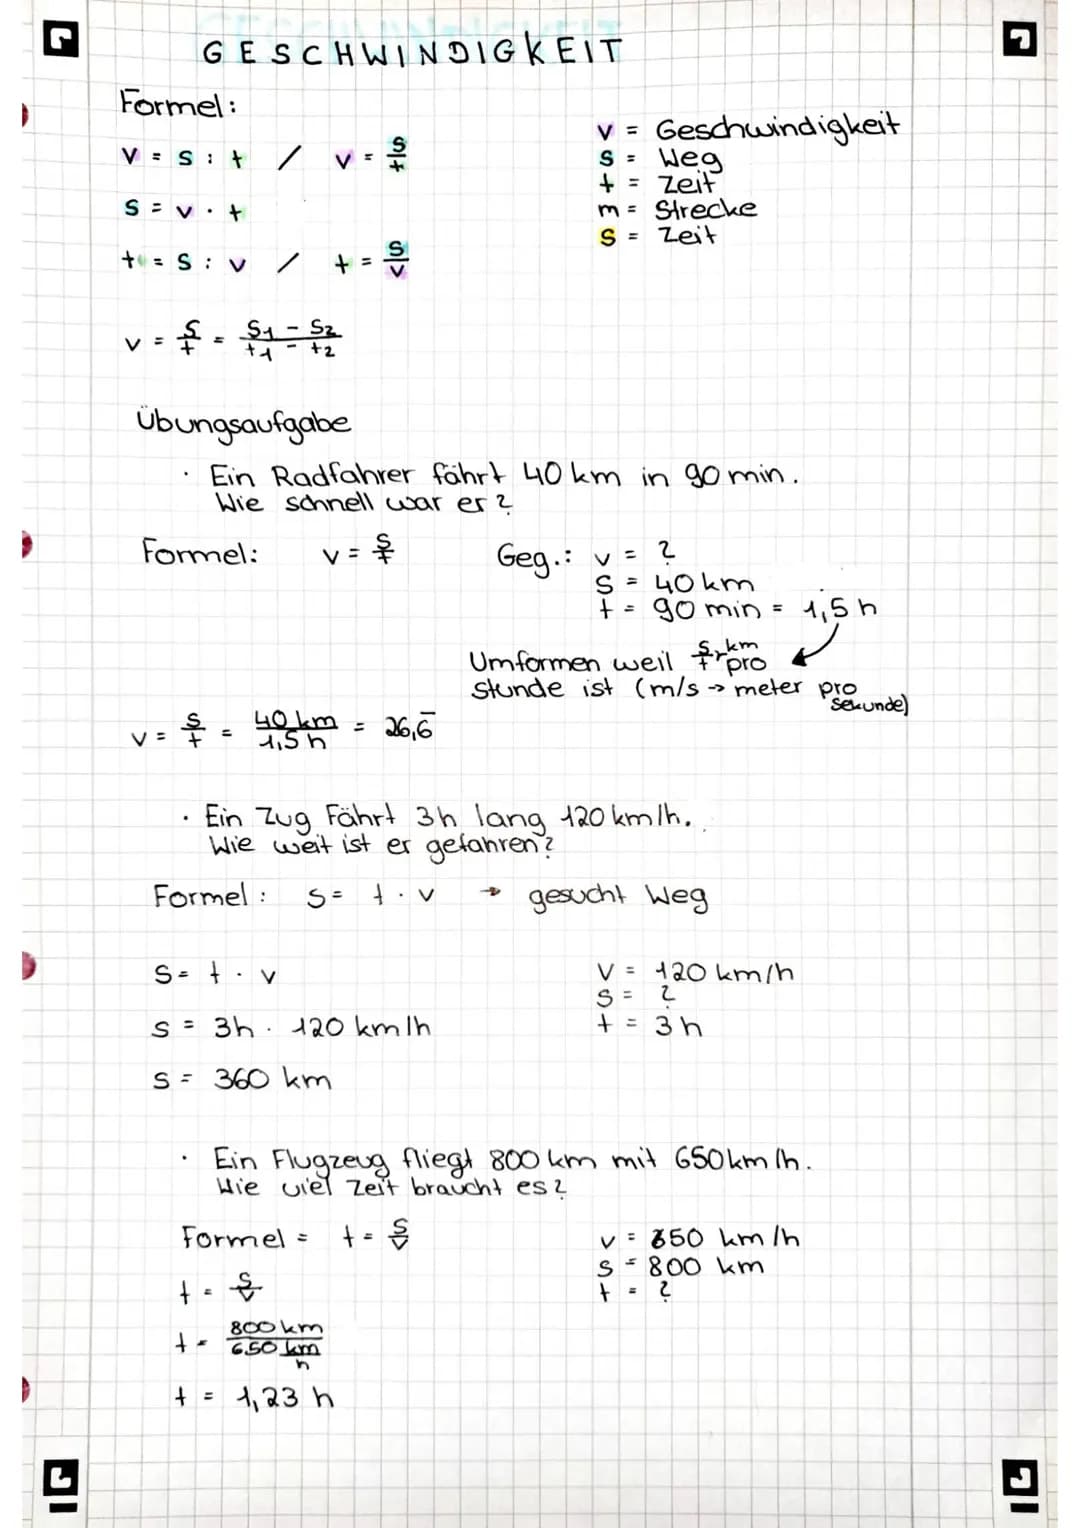 GESCHWINDIGKEIT
Formel:
v = s : t / v = s/t
s = v · t
t = s : v / t = s/v
v = s/t = s1 - s2 / t1 - t2
v = Geschwindigkeit
s = Weg
t = Zeit
m = Strecke
s = Zeit
Übungsaufgabe
· Ein Radfahrer fährt 40 km in 90 min.
Wie schnell war er?
Formel: v = s/t
Geg.: v = ?
s = 40 km
t = 90 min = 1,5 h
Umformen weil s/t, km pro
stunde ist (m/s → meter pro
sekunde)
v = s/t = 40 km / 1,5 h = 26,6̅
· Ein Zug Fährt 3h lang 120 km/h.
Wie weit ist er gefahren?
Formel: s = t · v → gesucht Weg
s = t · v
s = 3h · 120 km/h
s = 360 km
v = 120 km/h
s = ?
t = 3 h
· Ein Flugzeug fliegt 800 km mit 650 km/h.
Wie viel Zeit braucht es?
Formel = t = s/v
t = s/v
t = 800 km / 650 km/h
t = 1,23 h
v = 650 km/h
s = 800 km
t = ?